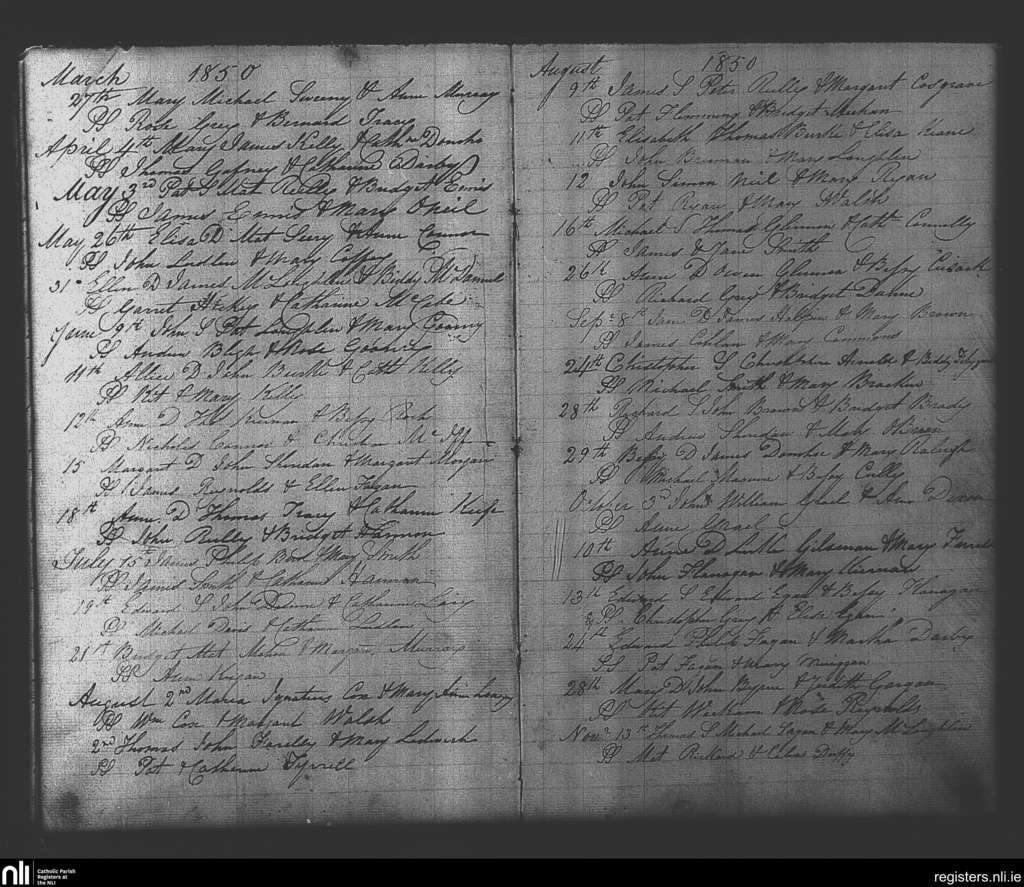 March 1850
27th Mary Michael Sweeny & Anne Murray
Rose Grey & Bernard Tracy
April 4th Mary James Kelly & Cathn Donoho
Thomas Gafney & Catharine Darby
May 3rd Pat S Mat Reilly & Bridget Ennis
James Ennis & Mary ONeil
May 26th Elisa D Mat Leery & Anne Connor
John Ludlow & Mary Coffey
31 Ellen D James McLoughlin & Biddy McDaniel
Garret Hickey & Catharine McCabe
June 9th John S Pat Loughlin & Mary Gooney
Andrew & Rose Gooney
11th Allice D John Burke & Cath Kelly
Kit & Mary Kelly
12th Ann D Ths Kiernan & Bessy
Nicholas Connor &
15 Margaret D John Sheridan & Margaret Morgan
James Reynolds & Ellen Fagan
18th Anne D Thomas Tracy & Catharine Keefe
John Reilly & Bridget Harmon
July 15th James Philip & Mary Smith
James Smith & Catharine Hanman
19th Edward S John Dunne & Catharine
Michael Davis & Catharine Ludlow
21st Bridget Mat Mahon & Margaret Murray
Anne Keegan
August 2nd Maria Ignatius Cox & Mary Ann
Wm Cox & Margaret Walsh
2nd Thomas John Farelly & Mary Ledwich
Pat & Catherine Tyrrell
August 1850
9th James S Peter Reilly & Margaret Cosgrave
Pat Flemming & Bridget Meehan
11th Elisabeth Thomas Burke & Elisa Keane
John Brennan & Mary Loughlin
12 John Simon Niel & Mary Ryan
Pat Ryan & Mary Walsh
16th Michael S Thomas Glennon & Cath Connolly
James & Jane Smith
26th Anne D Owen Glennon & Bessy Cusack
Richard Grey & Bridget Dunne
Sepr 8th D James Halpin & Mary Brown
James Cohlan & Mary Commons
24th Christopher S Christopher Arnold & Biddy
Michael Smith & Mary Bracken
28th Richard S John Brown & Bridget Brady
Andrew Sheridan & Mary OBrien
29th Bessy D James Donohoe & Mary Raleigh
Michael & Bessy Cully
October 3rd John William Grael & Ann Dixon
Anne Grael
10th Anne D Luke Gilsenan & Mary Farrell
John Flanagan & Mary Kiernan
13th Edward S Edward Egan & Bessy Flanagan
Christopher Gray & Elisa
24th Edward Philip Fagan & Martha Darby
Pat Fagan & Mary
28th Mary D John Byrne & Judith Gargan
& Rose Reynolds
Novr 13th Thomas S Michael Fagan & Mary McLoughlin
Mat & Celia Duffy
nli
Catholic Parish
Registers at
the NLI
registers.nli.ie